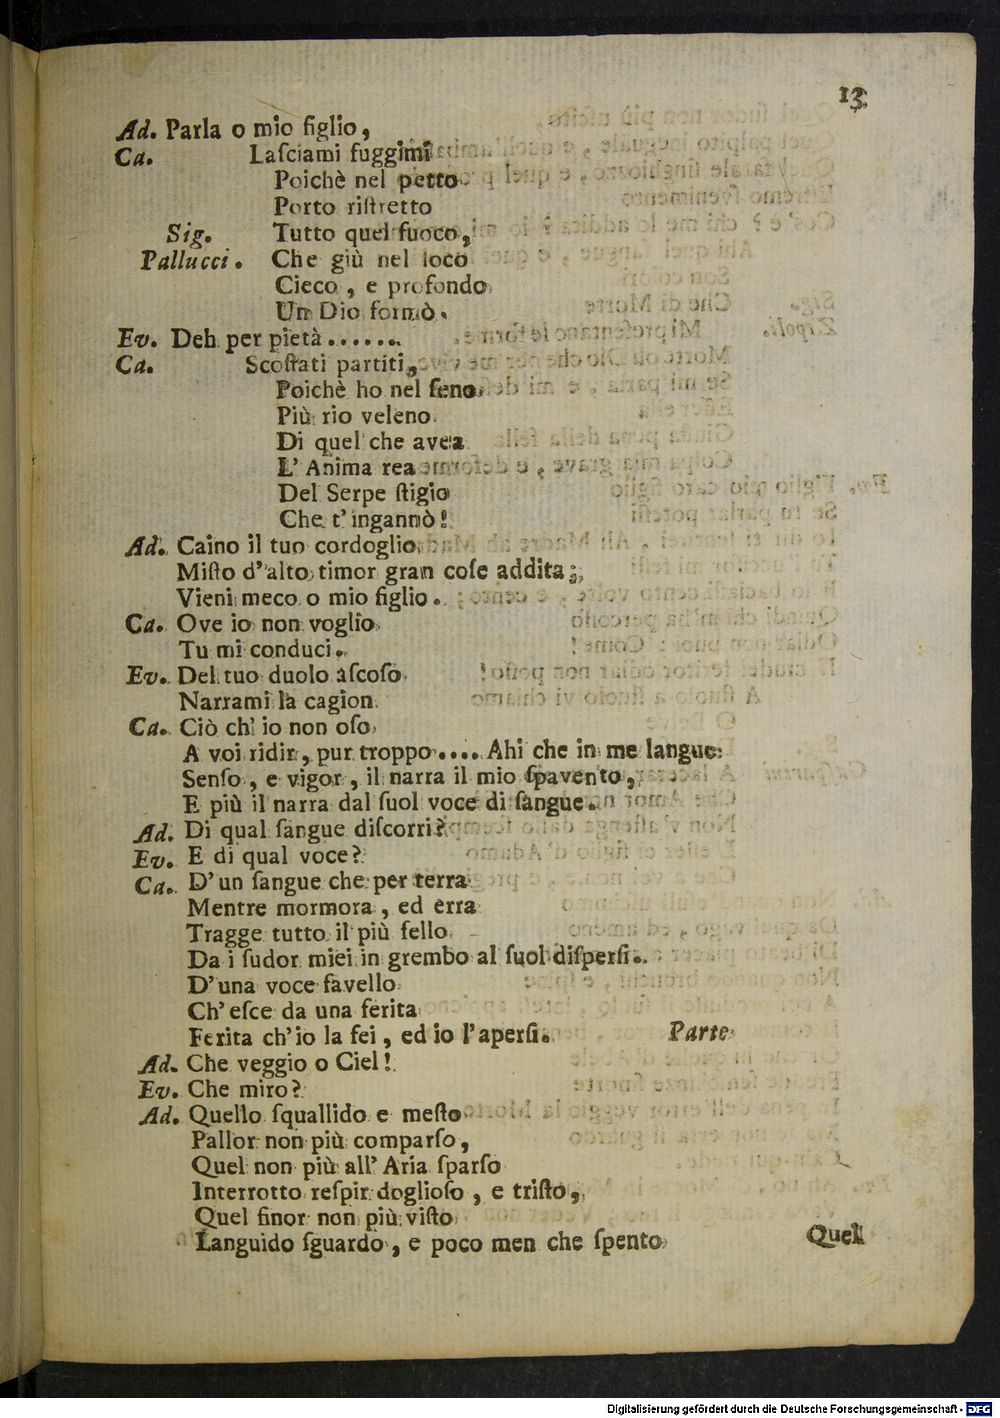 13
Ad. Parla o mio figlio,
Ca. Laſciami fuggimi
Poichè nel petto
Porto riſtretto
Sig. Tutto quel fuoco,
Pallucci. Che giù nel loco
Cieco, e profondo
Un Dio formò.
Ev. Deh per pietà.......
Ca. Scoſtati partiti,
Poichè ho nel ſeno
Più rio veleno
Di quel che avea
L' Anima rea
Del Serpe ſtigio
Che t' ingannò!
Ad. Caino il tuo cordoglio
Miſto d' alto timor gran coſe addita;
Vieni meco o mio figlio.
Ca. Ove io non voglio
Tu mi conduci.
Ev. Del tuo duolo aſcoſo
Narrami la cagion
Ca. Ciò ch' io non oſo
A voi ridir, pur troppo.... Ahi che in me langue
Senſo, e vigor, il narra il mio ſpavento,
E più il narra dal ſuol voce di ſangue.
Ad. Di qual ſangue diſcorri?
Ev. E di qual voce?
Ca. D' un ſangue che per terra
Mentre mormora, ed erra
Tragge tutto il più fello
Da i ſudor miei in grembo al ſuol diſperſi.
D' una voce favello
Ch' eſce da una ferita
Ferita ch' io la fei, ed io l' aperſi. Parte
Ad. Che veggio o Ciel!
Ev. Che miro?
Ad. Quello ſquallido e meſto
Pallor non più comparſo,
Quel non più all' Aria ſparſo
Interrotto reſpir doglioſo, e triſto,
Quel finor non più viſto
Languido ſguardo, e poco men che ſpento
Quel
Digitalisierung gefördert durch die Deutsche Forschungsgemeinschaft - DFG